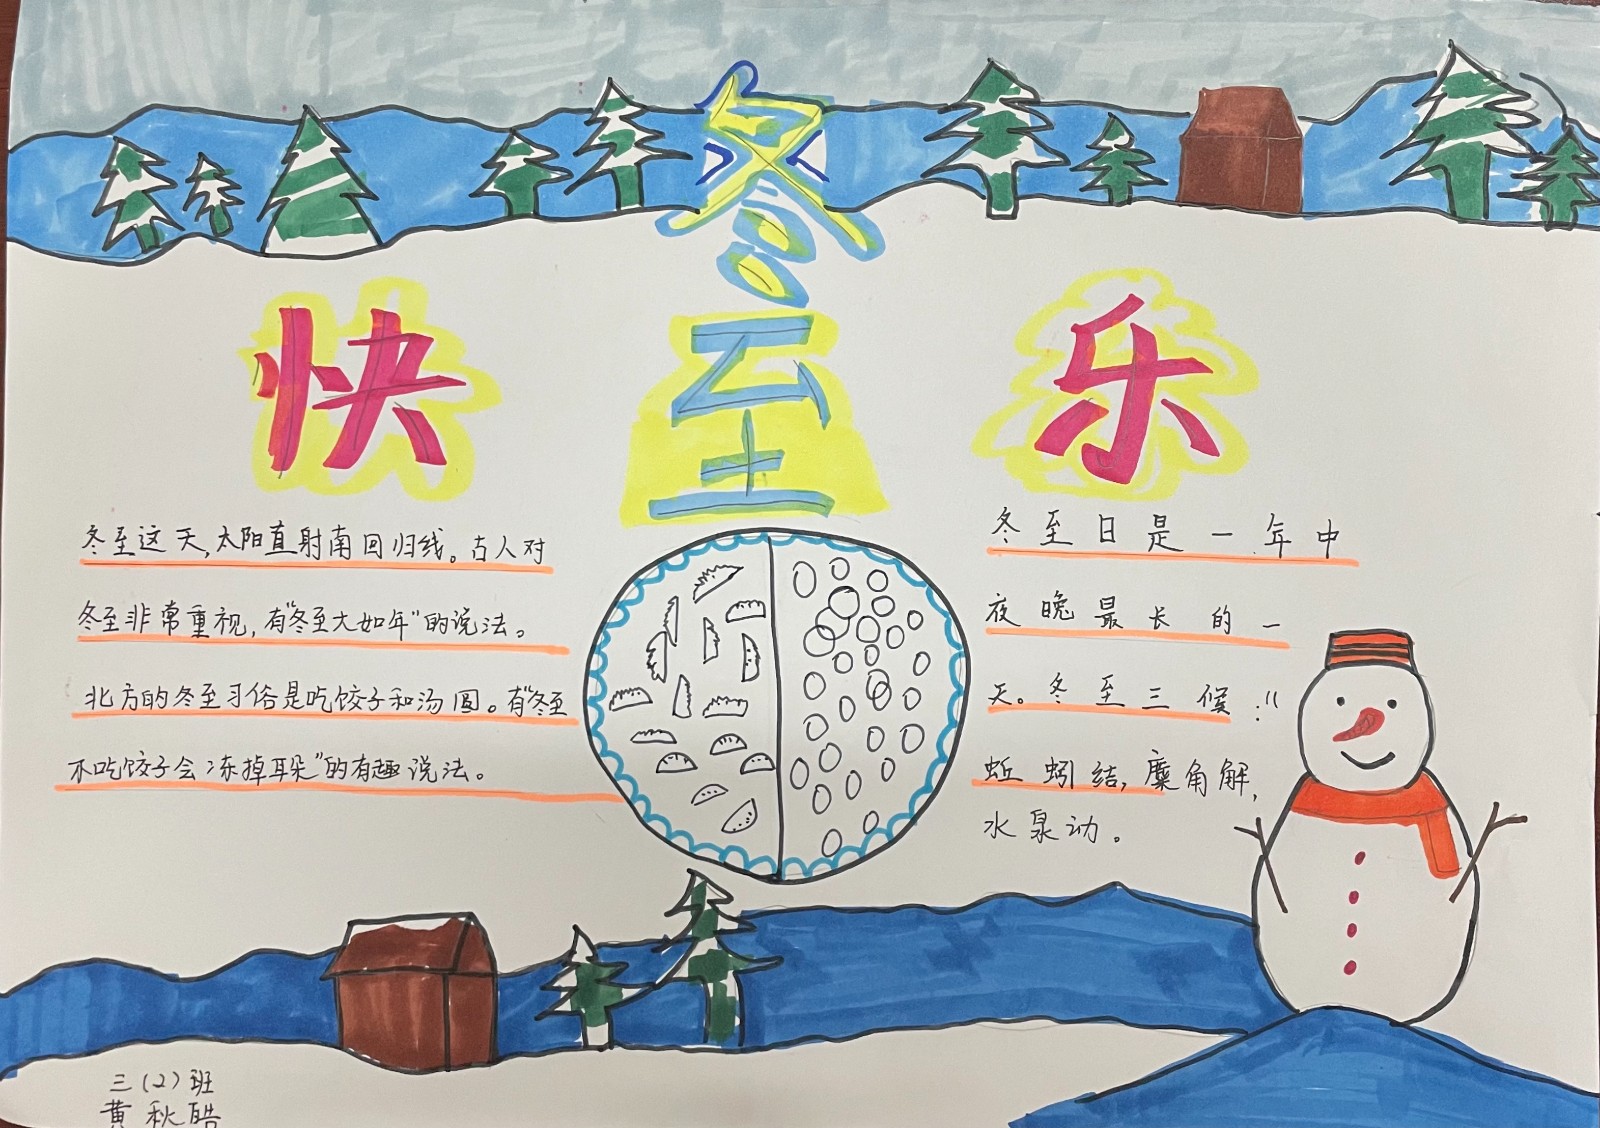 冬至
快乐
冬至这天,太阳直射南回归线。古人对
冬至非常重视,有“冬至大如年”的说法。
北方的冬至习俗是吃饺子和汤圆。有“冬至
不吃饺子会冻掉耳朵”的有趣说法。
冬至日是一年中
夜晚最长的一
天。冬至三候:“
蚯蚓结,麋角解,
水泉动。
三(2)班
黄秋皓